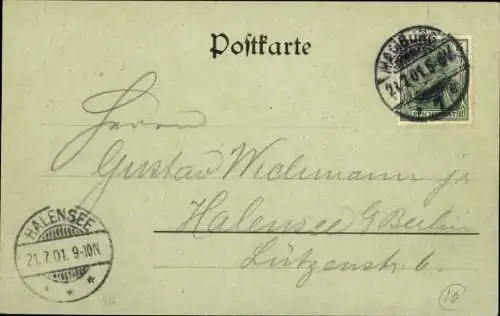 Postkarte
HAMBURG
21.7.01. 8-9V.
Herrn
Gustav Wichmann jr
Halensee b/Berlin
Lützenstr. 6.
HALENSEE
21.7.01. 9-10N.
* * *
10